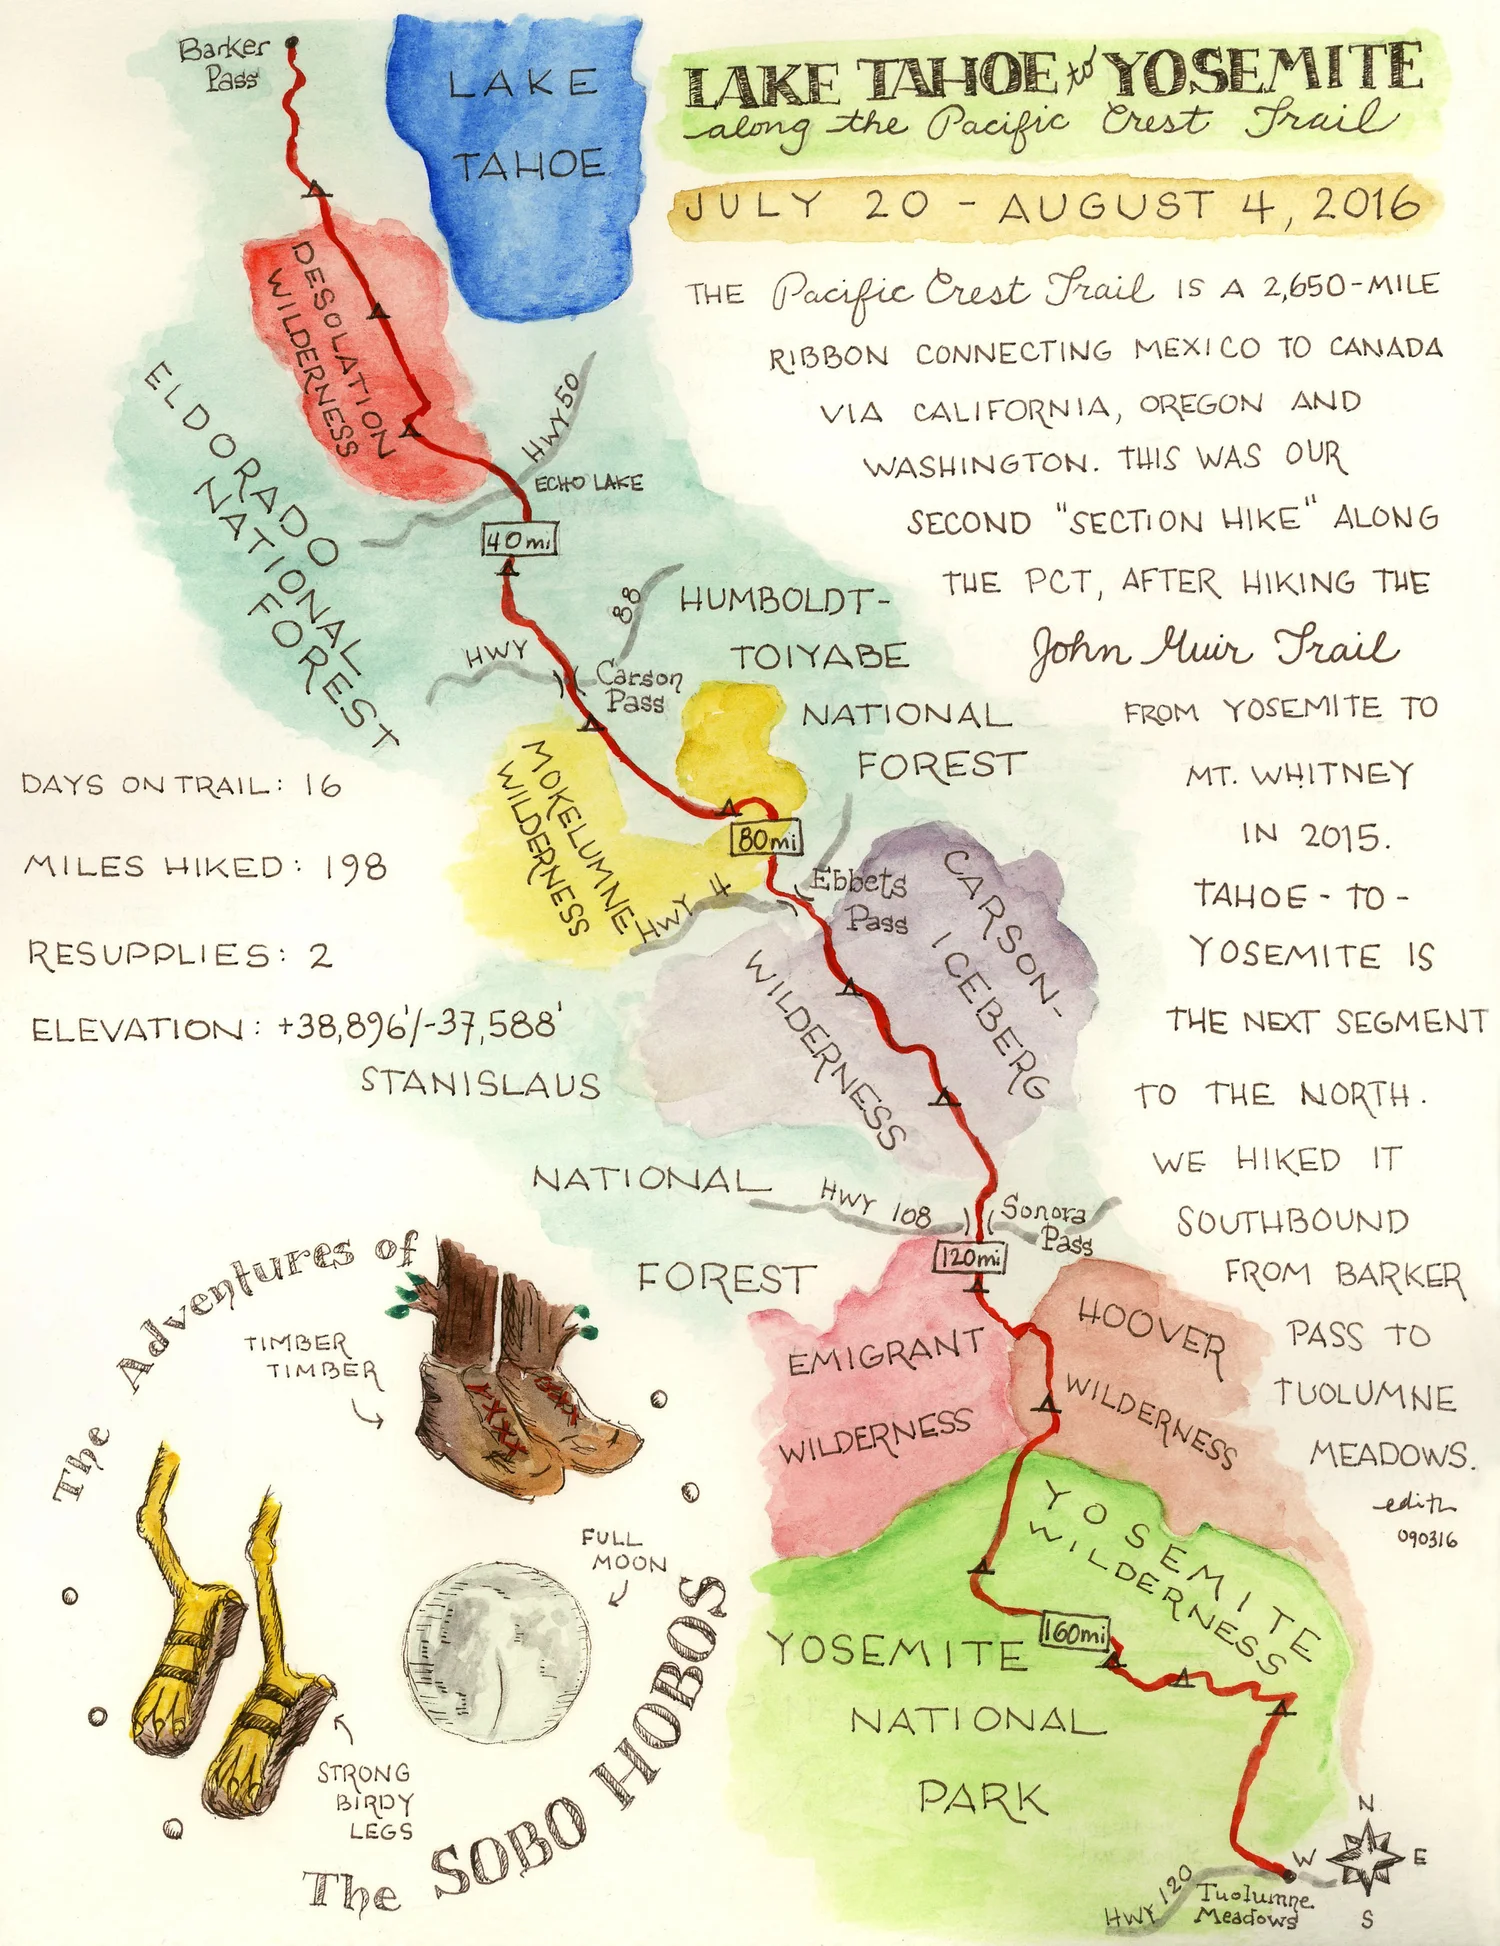 LAKE TAHOE to YOSEMITE
along the Pacific Crest Trail
JULY 20 - AUGUST 4, 2016
THE Pacific Crest Trail IS A 2,650-MILE
RIBBON CONNECTING MEXICO TO CANADA
VIA CALIFORNIA, OREGON AND
WASHINGTON. THIS WAS OUR
SECOND "SECTION HIKE" ALONG
THE PCT, AFTER HIKING THE
John Muir Trail
FROM YOSEMITE TO
MT. WHITNEY
IN 2015.
TAHOE-TO-
YOSEMITE IS
THE NEXT SEGMENT
TO THE NORTH.
WE HIKED IT
SOUTHBOUND
FROM BARKER
PASS TO
TUOLUMNE
MEADOWS.
edith
090316
Barker
Pass
LAKE
TAHOE
DESOLATION
WILDERNESS
ELDORADO
NATIONAL
FOREST
HWY 50
ECHO LAKE
40mi
HUMBOLDT-
TOIYABE
NATIONAL
FOREST
HWY
88
Carson
Pass
MOKELUMNE
WILDERNESS
80mi
HWY 4
Ebbets
Pass
CARSON-
ICEBERG
WILDERNESS
DAYS ON TRAIL: 16
MILES HIKED: 198
RESUPPLIES: 2
ELEVATION: +38,896'/-37,588'
STANISLAUS
NATIONAL
FOREST
HWY 108
Sonora
Pass
120mi
EMIGRANT
WILDERNESS
HOOVER
WILDERNESS
YOSEMITE
WILDERNESS
160mi
YOSEMITE
NATIONAL
PARK
HWY 120
Tuolumne
Meadows
N
W
E
S
The Adventures of
TIMBER
TIMBER
FULL
MOON
STRONG
BIRDY
LEGS
The SOBO HOBOS